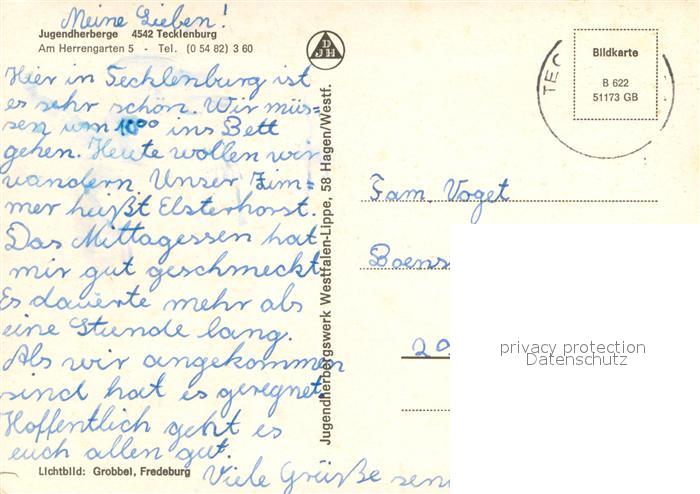 Meine Lieben!
Jugendherberge 4542 Tecklenburg
Am Herrengarten 5 - Tel. (0 54 82) 3 60
Hier in Tecklenburg ist
es sehr schön. Wir müs=
sen um 10⁰⁰ ins Bett
gehen. Heute wollen wir
wandern. Unser Zim=
mer heißt Elsterhorst.
Das Mittagessen hat
mir gut geschmeckt.
Es dauerte mehr als
eine Stunde lang.
Als wir angekommen
sind hat es geregnet.
Hoffentlich geht es
euch allen gut.
Lichtbild: Grobbel, Fredeburg
Viele Grüße sen
Jugendherbergswerk Westfalen-Lippe, 58 Hagen/Westf.
DJH
Bildkarte
B 622
51173 GB
TEC
Fam. Voget
Boens
20
privacy protection
Datenschutz